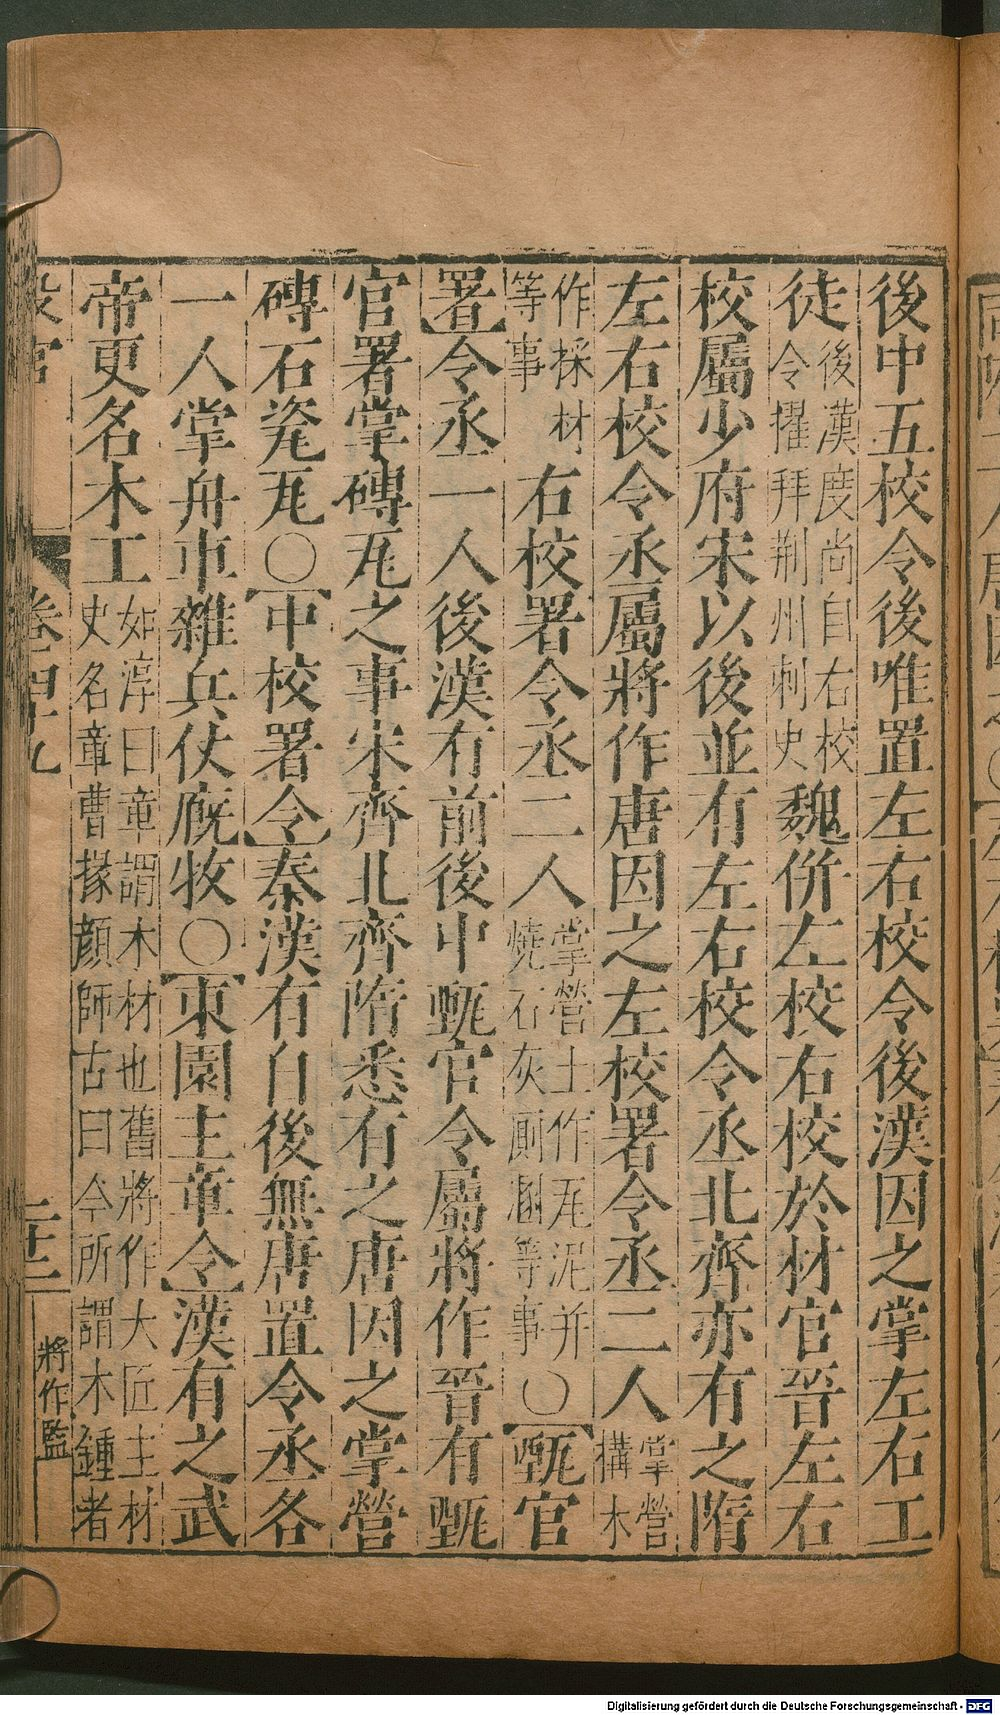 後中五校令後唯置左右校令後漢因之掌左右工
徒後漢度尚自右校令擢拜荆州刺史魏併左校右校於材官晉左右
校屬少府宋以後並有左右校令丞北齊亦有之隋
左右校令丞屬將作唐因之左校署令丞二人掌營構木
作採材等事右校署令丞二人掌營土作瓦泥并燒石灰廁溷等事○甄官
署令丞一人後漢有前後中甄官令屬將作晉有甄
官署掌磚瓦之事宋齊北齊隋悉有之唐因之掌營
磚石瓷瓦○中校署令秦漢有自後無唐置令丞各
一人掌舟車雜兵仗廐牧○東園主章令漢有之武
帝更名木工如淳曰章謂木材也舊將作大匠主材史名章曹掾顔師古曰今所謂木鍾者
卷四十九
將作監
Digitalisierung gefördert durch die Deutsche Forschungsgemeinschaft - DFG